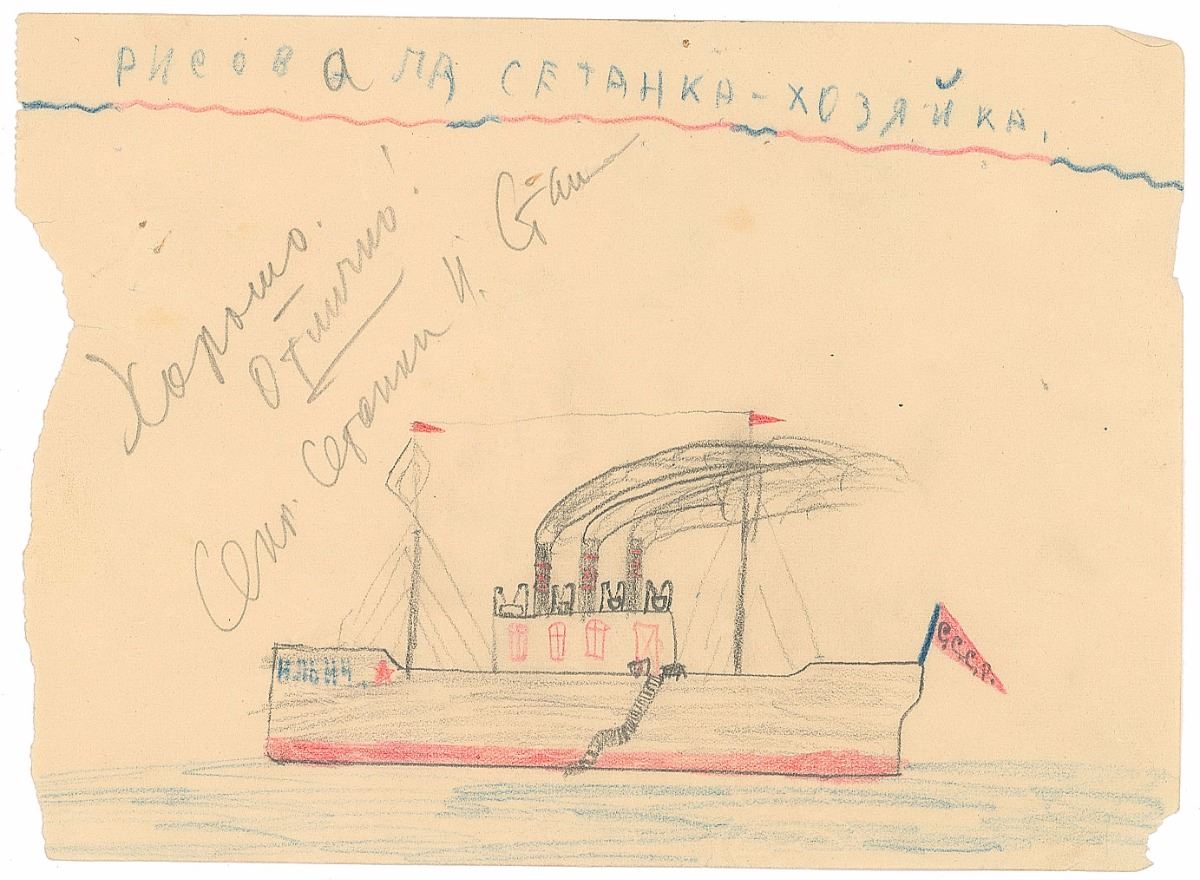 РИСОВаЛА СЕТАНКА-ХОЗЯЙКА.
Хорошо.
Отлично!
Секр. Сетанки И. Стали
ИЛЬИЧ.
С.С.С.Р.